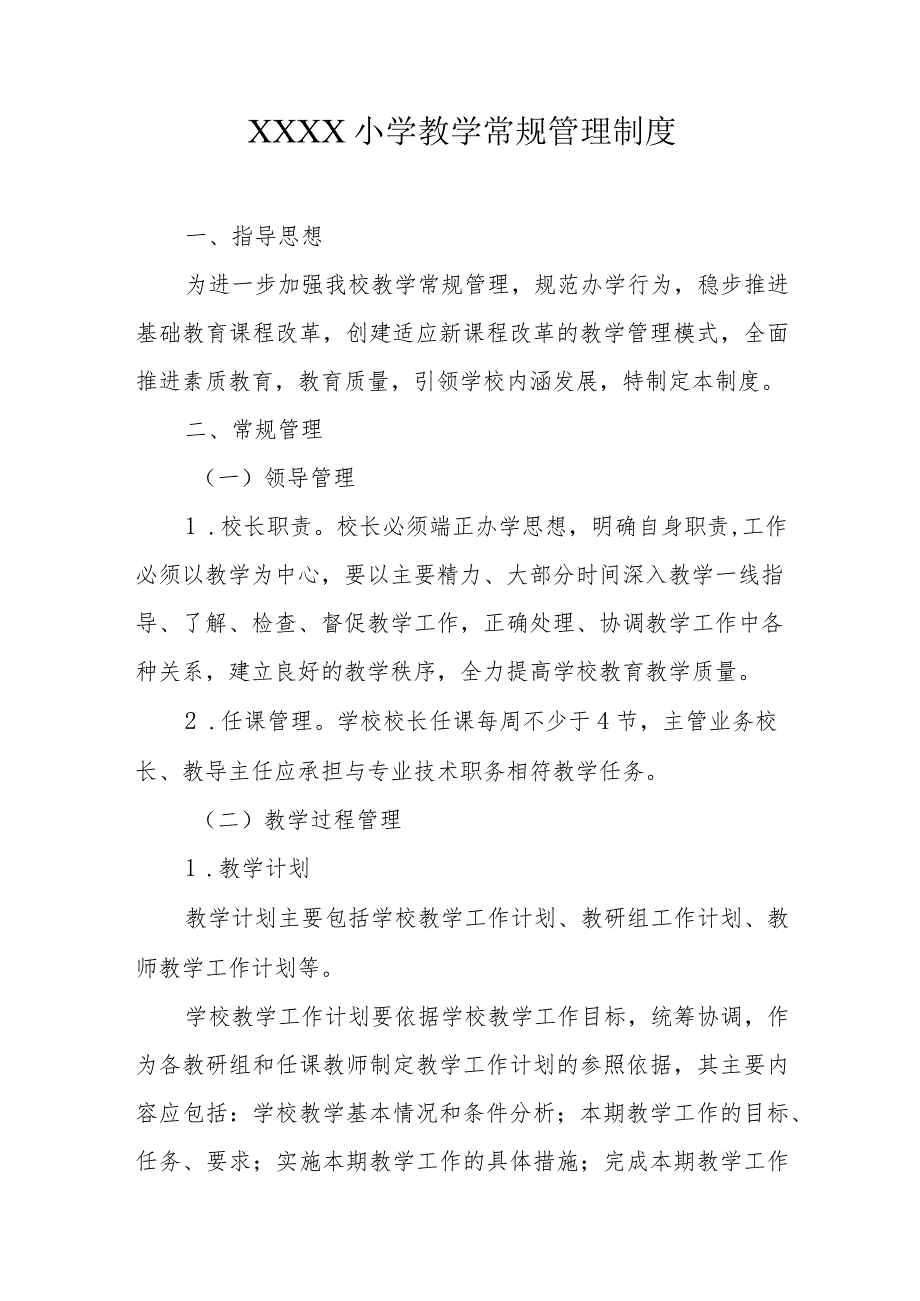 XXXX 小学教学常规管理制度
一、指导思想
为进一步加强我校教学常规管理，规范办学行为，稳步推进
基础教育课程改革，创建适应新课程改革的教学管理模式，全面
推进素质教育，教育质量，引领学校内涵发展，特制定本制度。
二、常规管理
（一）领导管理
1 .校长职责。校长必须端正办学思想，明确自身职责,工作
必须以教学为中心，要以主要精力、大部分时间深入教学一线指
导、了解、检查、督促教学工作，正确处理、协调教学工作中各
种关系，建立良好的教学秩序，全力提高学校教育教学质量。
2 .任课管理。学校校长任课每周不少于 4 节，主管业务校
长、教导主任应承担与专业技术职务相符教学任务。
（二）教学过程管理
1 .教学计划
教学计划主要包括学校教学工作计划、教研组工作计划、教
师教学工作计划等。
学校教学工作计划要依据学校教学工作目标，统筹协调，作
为各教研组和任课教师制定教学工作计划的参照依据，其主要内
容应包括：学校教学基本情况和条件分析；本期教学工作的目标、
任务、要求；实施本期教学工作的具体措施；完成本期教学工作